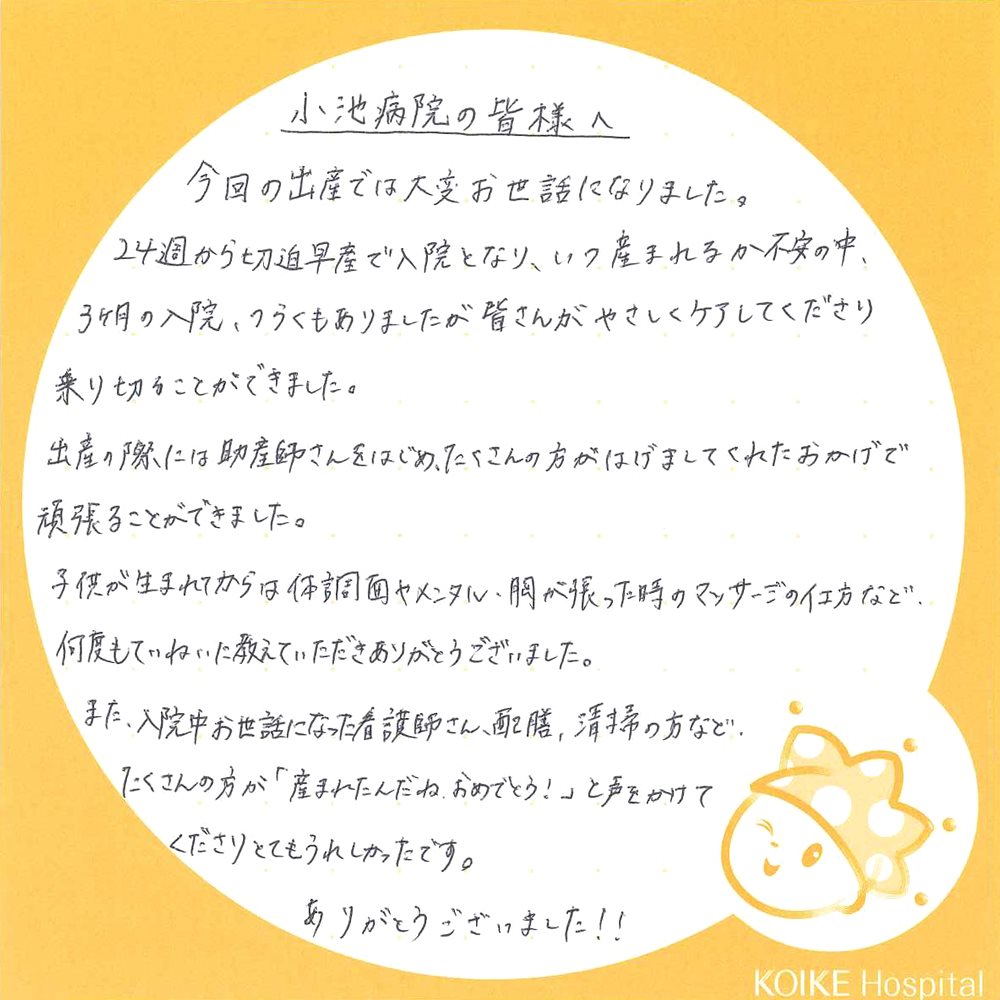 小池病院の皆様へ
今回の出産では大変お世話になりました。
24週から切迫早産で入院となり、いつ産まれるか不安の中、
3ヶ月の入院、つらくもありましたが皆さんがやさしくケアしてくださり
乗り切ることができました。
出産の際には助産師さんをはじめ、たくさんの方がはげましてくれたおかげで
頑張ることができました。
子供が生まれてからは体調面やメンタル、胸が張った時のマッサージの仕方など、
何度もていねいに教えていただきありがとうございました。
また、入院中お世話になった看護師さん、配膳、清掃の方など、
たくさんの方が「産まれたんだね、おめでとう!」と声をかけて
くださりとてもうれしかったです。
ありがとうございました!!
KOIKE Hospital